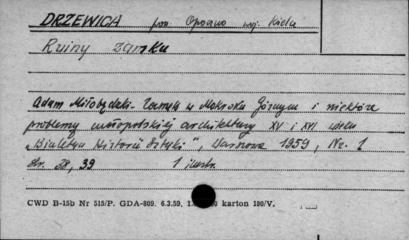 DRZEWICA pow. Opoczno woj. Kielce
Ruiny zamku
Adam Miłobędzki. Zamek w Mokrsku Górnym i niektóre
problemy małopolskiej architektury XV i XVI wieku
„Biuletyn Historii Sztuki", Warszawa 1959, Nr. 1
str. 39
1 ilustr.
CWD B-15b Nr 515/P. GDA-809. 6.3.59, karton 180/V.